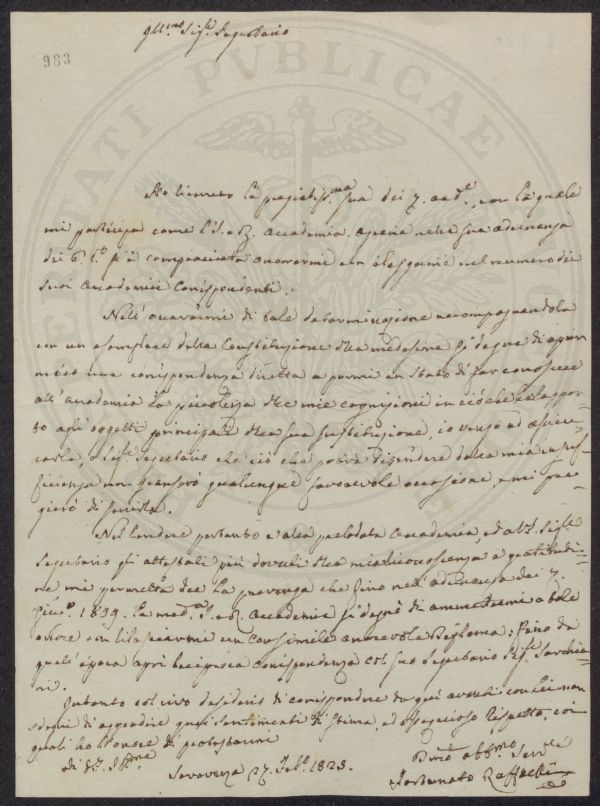 Ill.mo Sig.r Segretario
983
Ho ricevuto la pregiatiss.ma sua dei 7. and.e, con la quale
mi partecipa come l'I. e R. Accademia aperse nella sua adunanza
dei 6. d.o si è compiaciuta onorarmi con eleggermi nel numero dei
suoi Accademici Corrispondenti.
Nell' avvisarmi di tale determinazione accompagnandola
con un esemplare della Costituzione della medesima si degna di aprir
meco una corrispondenza diretta a pormi in stato di far conoscere
all' Accademia la piccolezza delle mie cognizioni in ciò che ha rappor-
to agli oggetti principali della sua Instituzione, io vengo ad assicu-
rarla, o Sig.r Segretario che ciò che potrà dipendere dalla mia insuf-
ficienza non qualunque favorevole occasione, e mi pre-
gierò di
Nel rendere pertanto e alla prelodata Accademia, ed al Sig.r
Segretario gli attestati più dovuti della mia riconoscenza e gratitudi-
ne mi permetta che la prevenga che fino nell' adunanza dei 7.
la med.a I. e R. Accademia si degnò di ammettermi a tale
onore con rilasciarmi un consimile onorevole Diploma: Fino da
quell' epoca aprì reciproca corrispondenza col suo Segretario Sig.r Sarchia-
ni.
Intanto col vivo desiderio di corrispondere da qui avanti con Lei non
sdegni di aggradire quei sentimenti di stima, ed ossequioso rispetto, coi
quali ho l'onore di protestarmi
di V.S. Ill.ma
Seravezza 27. Feb.o 1823.
Dev.o Obb.mo Serv.e
Fortunato Raffaelli
PVBLICAE